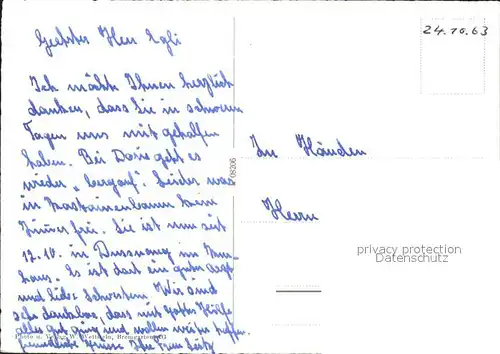 Geehrter Herr Egli
Ich möchte Ihnen herzlich
danken, dass Sie in schweren
Tagen uns mit geholfen
haben. Bei Doris geht es
wieder „bergauf". Leider war
in kein
Zimmer frei. Sie ist nun seit
12.10. in Dussnang im Kur-
haus. Es ist dort ein guter Arzt
und liebe Schwestern. Wir sind
sehr dankbar, dass mit Gottes Hilfe
alles gut ging und wollen weiter hoffen.
freundliche Grüsse Ihre Frau
Photo u. Verlag W. Wettstein, Bremgarten
08206
24.10.63
Zu Händen
Herrn
privacy protection
Datenschutz